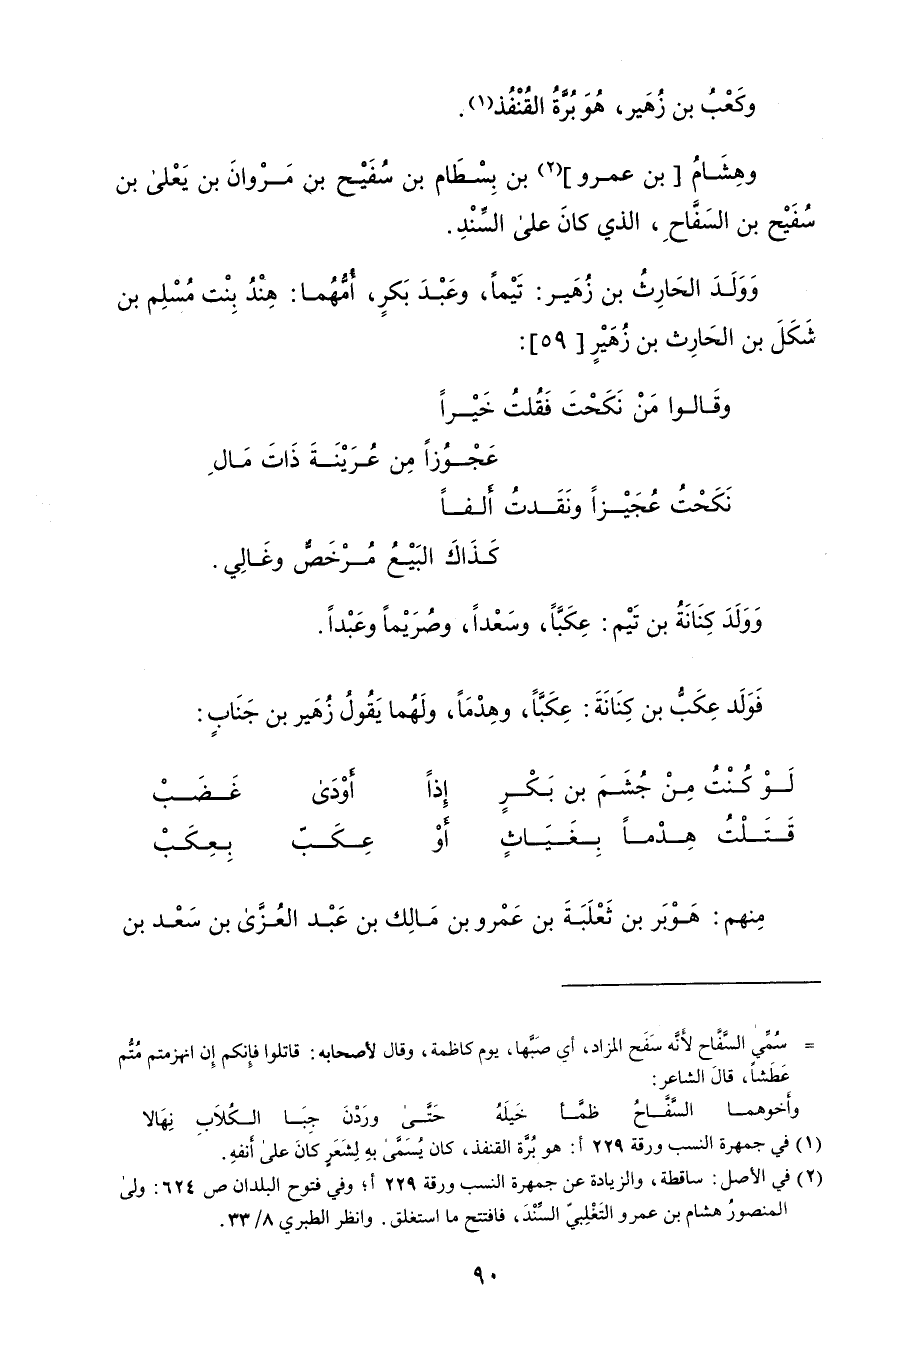 وكَعْبُ بن زُهَير، هُوَ بُرَّةُ القُنْفُذ(١).
وهِشَـامُ [ بن عمرو ](٢) بن بِسْطَام بن سُفَيْح بن مَـرْوانَ بن يَعْلىٰ بن
سُفَيْح بن السَفَّاحِ، الذي كانَ علىٰ السِّنْدِ.
وَوَلَـدَ الحَارِثُ بن زُهَيـر: تَيْماً، وعَبْـدَ بَكرٍ، أُمُّهُمـا: هِنْدُ بِنْت مُسْلِم بن
شَكَلَ بن الحَارِث بن زُهَيْرٍ [ ٥٩]:
وقَـالـوا مَنْ نَكَحْتَ فَقُلتُ خَيْـراً
عَجْـوُزاً مِن عُـرَيْنَـةَ ذَاتَ مَـالِ
نَكَحْتُ عُجَيْـزاً ونَقَـدتُ أَلـفـاً
كَـذَاكَ البَيْـعُ مُـرْخَصٌ وغَـالِي.
وَوَلَدَ كِنَانَةُ بن تَيْم: عِكَبَّاً، وسَعْداً، وصُرَيْماً وعَبْداً.
فَوَلَد عِكَبُّ بن كِنَانَةَ: عِكَبَّاً، وهِدْمَاً، ولَهُما يَقُولُ زُهَير بن جَنَابٍ:
لَـوْ كُنْتُ مِنْ جُشَـمَ بن بَـكْـرٍ إِذاً أَوْدَىٰ غَـضَـبْ
قَـتَـلْتُ هِـدْمـاً بِـغَـيَـاثٍ أَوْ عِـكَـبّ بِـعِـكَـبْ
مِنهم: هَـوْبَر بن ثَعْلَبَـةَ بن عَمْرو بن مَـالِك بن عَبْـد العُـزَّىٰ بن سَعْـد بن
= سُمِّي السَّفَّاح لأنَّه سَفَح المزاد، أي صَبَّها، يوم كاظمة، وقال لأصحابه: قاتلوا فإنكم إن انهزمتم مُتُّم
عَطَشاً، قالَ الشاعر:
وأخوهمـا السَّفَّـاحُ ظمَّـأ خَيلَهُ حَتَّـىٰ وردْنَ جِبَـا الـكُلاَبِ نِهَالا
(١) في جمهرة النسب ورقة ٢٢٩ أ: هو بُرَّة القنفذ، كان يُسَمَّىٰ به لِشَعَرٍ كانَ علىٰ أنفهِ.
(٢) في الأصل: ساقطة، والزيادة عن جمهرة النسب ورقة ٢٢٩ أ؛ وفي فتوح البلدان ص ٦٢٤: ولىٰ
المنصورُ هشام بن عمرو التَغْلِبيّ السِّنْدَ، فافتتح ما استغلق. وانظر الطبري ٨/ ٣٣.
٩٠